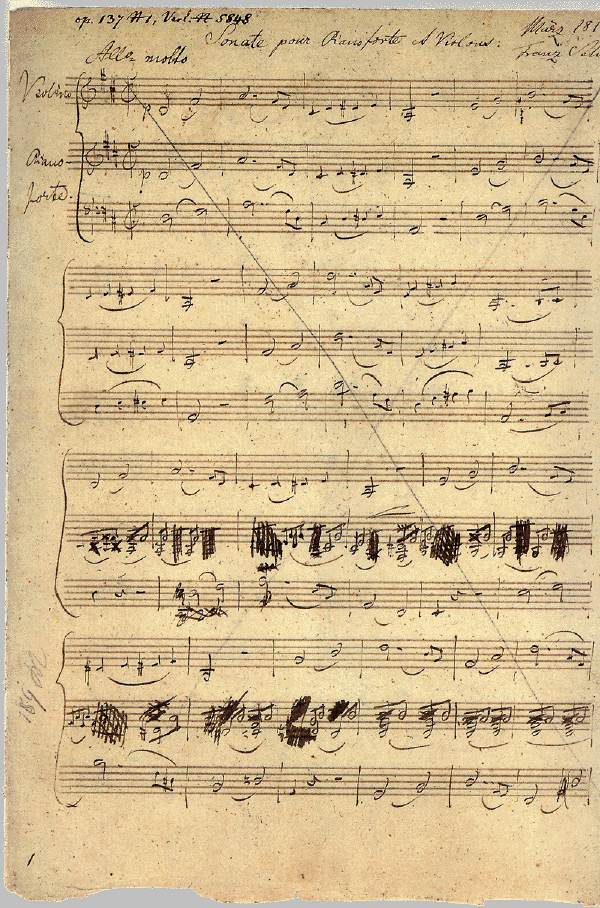 op. 137 # 1, Verl. # 5848
Sonate pour Pianoforte et Violons:
März 181
Franz
All° molto
Violino
Piano-
forte.
1